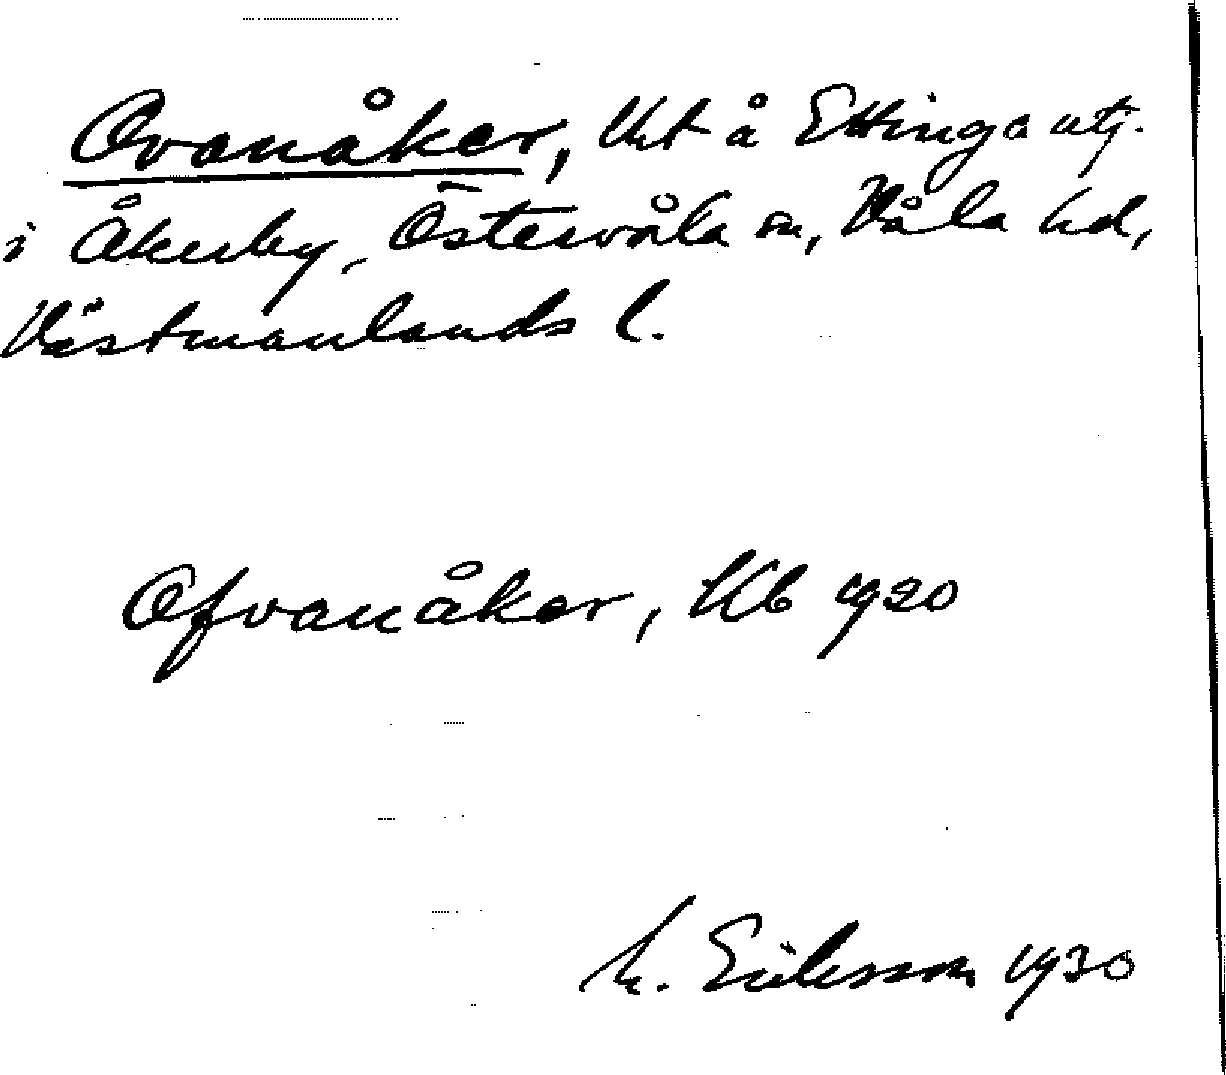 Ovanåker, Vret å Ettinga utj.
i Åkerby, Östervåla sn, Våla hd,
Västmanlands l.
Ofvanåker, Kb 1920
M. Eriksson 1930